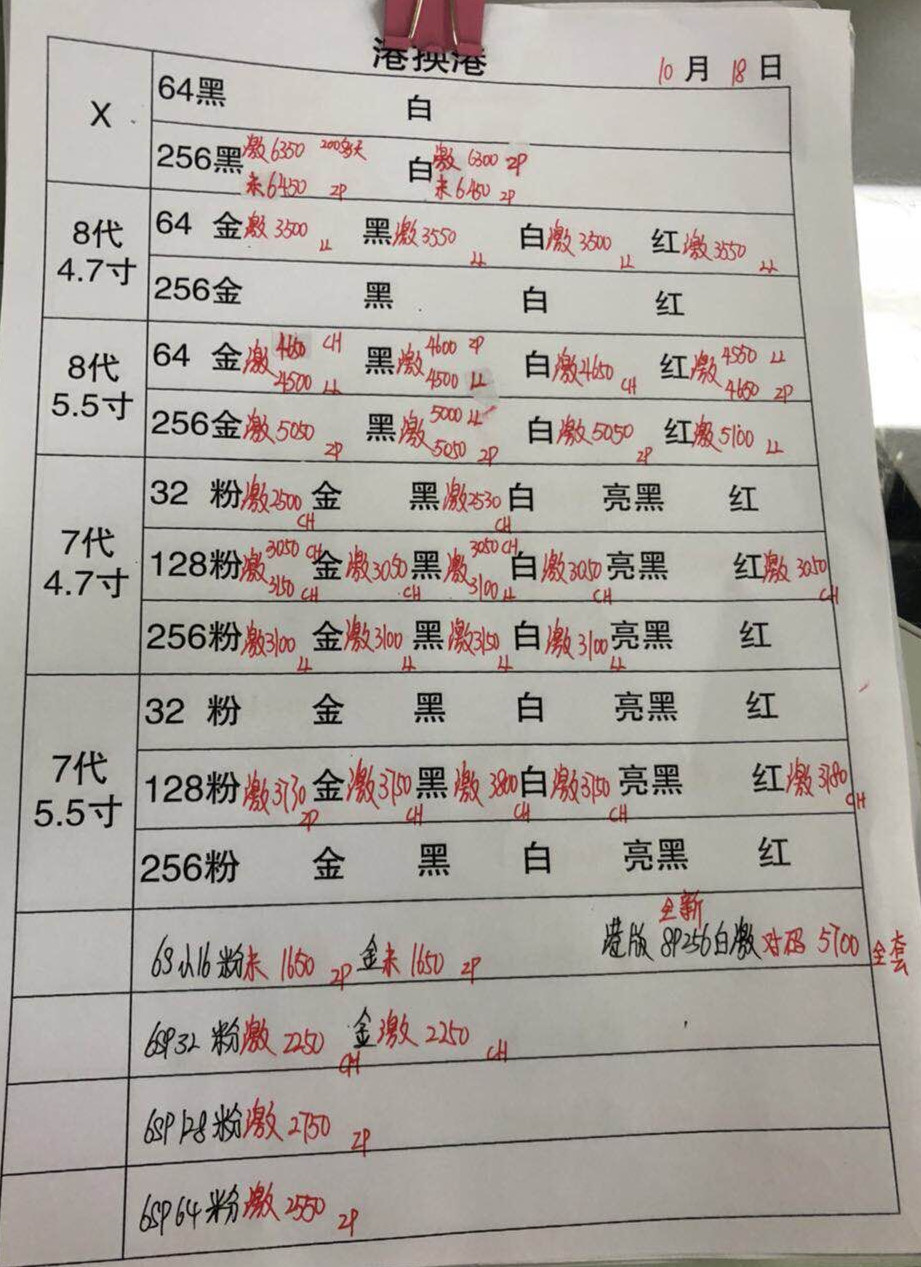 港换港 10月18日
X 64黑 白
256黑激6350 200多天 白激6300 ZP
未6450 ZP 未6450 ZP
8代 4.7寸 64 金激3500 LL 黑激3550 LL 白激3500 LL 红激3550 LL
256金 黑 白 红
8代 5.5寸 64 金激4650 CH 4500 LL 黑激4600 ZP 4500 LL 白激4650 CH 红激4550 LL 4650 ZP
256金激5050 ZP 黑激5000 LL 5050 ZP 白激5050 ZP 红激5100 LL
7代 4.7寸 32 粉激2500 CH 金 黑激2530 CH 白 亮黑 红
128粉激3050 CH 3150 CH 金激3050 CH 黑激3050 CH 3100 LL 白激3050 CH 亮黑 红激3050 CH
256粉激3100 LL 金激3100 LL 黑激3150 LL 白激3100 LL 亮黑 红
7代 5.5寸 32 粉 金 黑 白 亮黑 红
128粉激3730 ZP 金激3750 CH 黑激3800 CH 白激3750 CH 亮黑 红激3780 CH
256粉 金 黑 白 亮黑 红
全新
6S小16粉未1650 ZP 金未1650 ZP 港版8P256白激对码5700全套
6SP32粉激2250 CH 金激2250 CH
6SP128粉激2750 ZP
6SP64粉激2550 ZP